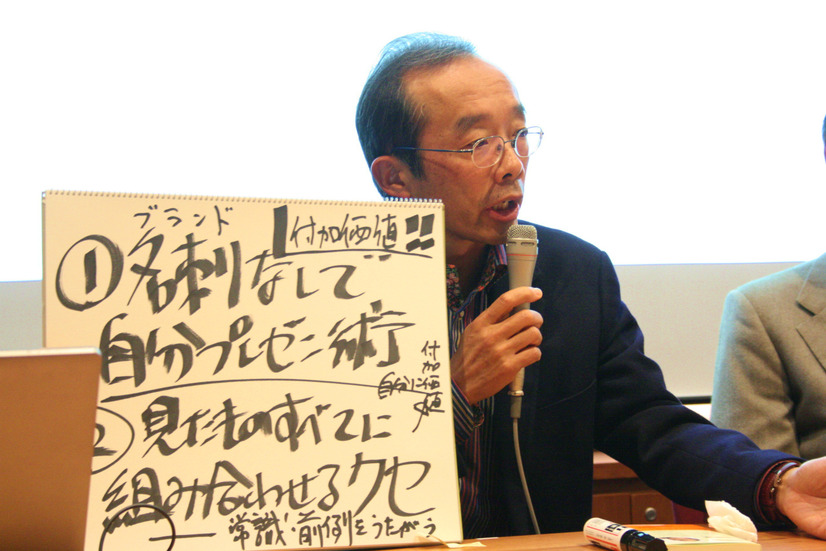 ブランド
付加価値!!
① 名刺なしで
自分プレゼン術
付加
自分に価値
② 見たものすべてに
組み合わせるクセ
常識・前例をうたがう